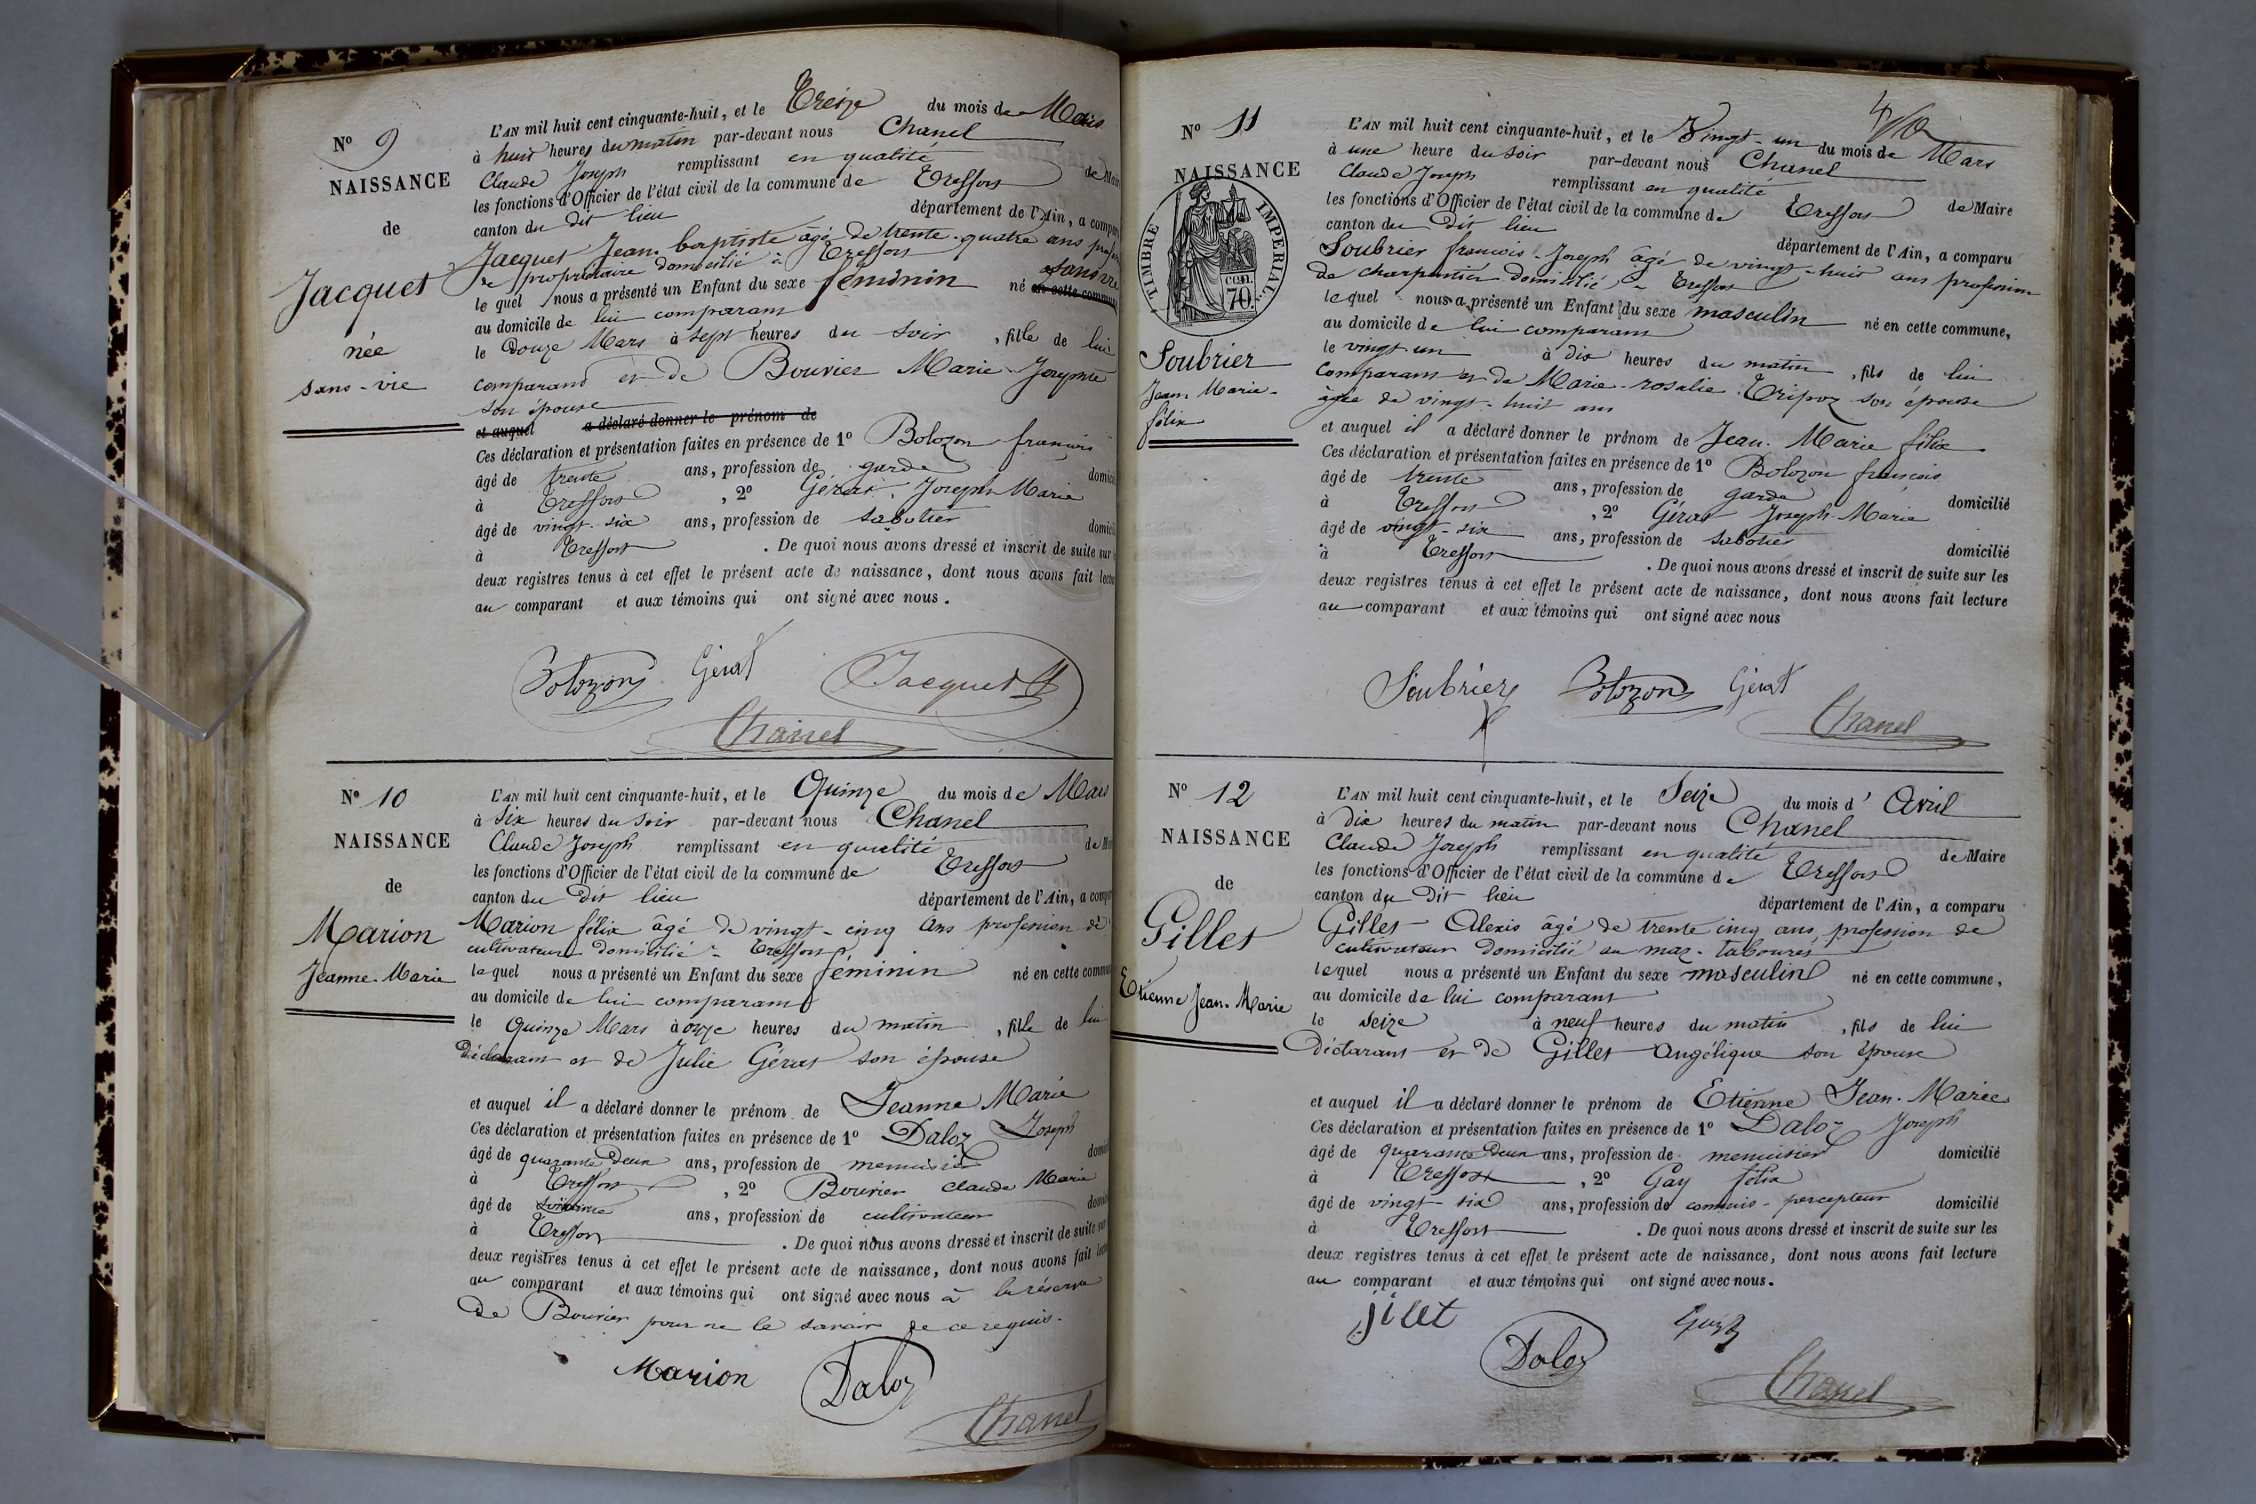 Nº 9
NAISSANCE
de
Jacquet
née
sans-vie
L'AN mil huit cent cinquante-huit, et le Treize du mois de Mars
à huit heures du matin par-devant nous Chanel
Claude Joseph remplissant en qualité de Mair
les fonctions d'Officier de l'état civil de la commune de Treffort
canton du dit lieu département de l'Ain, a compar
Jacquet Jean-baptiste âgé de trente-quatre ans profes
de propriétaire domicilié à Treffort
le quel nous a présenté un Enfant du sexe féminin né sans vie en cette commun
au domicile de lui comparant
le Douze Mars à sept heures du soir, fille de lui
comparant et de Bouvier Marie
son épouse
et auquel a déclaré donner le prénom de
Ces déclaration et présentation faites en présence de 1º Bolozon françois
âgé de trente ans, profession de garde domicil
à Treffort, 2º Gérat Joseph Marie
âgé de vingt-six ans, profession de sabotier domicil
à Treffort. De quoi nous avons dressé et inscrit de suite sur
deux registres tenus à cet effet le présent acte de naissance, dont nous avons fait lectu
au comparant et aux témoins qui ont signé avec nous.
Bolozon Gérat Jacquet
Chanel
Nº 10
NAISSANCE
de
Marion
Jeanne-Marie
L'AN mil huit cent cinquante-huit, et le Quinze du mois de Mars
à Six heures du soir par-devant nous Chanel
Claude Joseph remplissant en qualité de M
les fonctions d'Officier de l'état civil de la commune de Treffort
canton du Dit lieu département de l'Ain, a compa
Marion félix âgé de vingt-cinq ans profession de
cultivateur domicilié à Treffort
lequel nous a présenté un Enfant du sexe féminin né en cette commu
au domicile de lui comparant
le Quinze Mars à onze heures du matin, fille de lui
Déclarant et de Julie Gérat son épouse
et auquel il a déclaré donner le prénom de Jeanne Marie
Ces déclaration et présentation faites en présence de 1º Daloz Joseph
âgé de quarante Deux ans, profession de menuisier domici
à Treffort, 2º Bouvier Claude Marie
âgé de soixante ans, profession de cultivateur domici
à Treffort. De quoi nous avons dressé et inscrit de suite sur
deux registres tenus à cet effet le présent acte de naissance, dont nous avons fait lectu
au comparant et aux témoins qui ont signé avec nous à la réserve
De Bouvier pour ne le savoir de ce requis.
Marion Daloz
Chanel
Nº 11
NAISSANCE
TIMBRE IMPERIAL
CENT.
70
Soubrier
Jean-Marie-
félix
L'AN mil huit cent cinquante-huit, et le Vingt-un du mois de Mars
à une heure du soir par-devant nous Chanel
Claude Joseph remplissant en qualité de Maire
les fonctions d'Officier de l'état civil de la commune de Treffort
canton du Dit lieu département de l'Ain, a comparu
Soubrier francois-Joseph âgé de vingt-huit ans profession
de charpentier domicilié à Treffort
lequel nous a présenté un Enfant du sexe masculin né en cette commune,
au domicile de lui comparant
le vingt-un à dix heures du matin, fils de lui
comparant et de Marie-rosalie Tripoz son épouse
âgée de vingt-huit ans
et auquel il a déclaré donner le prénom de Jean-Marie félix
Ces déclaration et présentation faites en présence de 1º Bolozon françois
âgé de trente ans, profession de garde domicilié
à Treffort, 2º Gérat Joseph-Marie
âgé de vingt-six ans, profession de sabotier domicilié
à Treffort. De quoi nous avons dressé et inscrit de suite sur les
deux registres tenus à cet effet le présent acte de naissance, dont nous avons fait lecture
au comparant et aux témoins qui ont signé avec nous
Soubrier Bolozon Gérat
Chanel
Nº 12
NAISSANCE
de
Gillet
Etienne Jean-Marie
L'AN mil huit cent cinquante-huit, et le Seize du mois d'Avril
à Dix heures du matin par-devant nous Chanel
Claude Joseph remplissant en qualité de Maire
les fonctions d'Officier de l'état civil de la commune de Treffort
canton du Dit lieu département de l'Ain, a comparu
Gillet Alexis âgé de trente cinq ans, profession de
cultivateur domicilié au maz-tabouret
lequel nous a présenté un Enfant du sexe masculin né en cette commune,
au domicile de lui comparant
le seize à neuf heures du matin, fils de lui
Déclarant et de Gillet Angélique son épouse
et auquel il a déclaré donner le prénom de Etienne Jean-Marie
Ces déclaration et présentation faites en présence de 1º Daloz Joseph
âgé de quarante Deux ans, profession de menuisier domicilié
à Treffort, 2º Gay félix
âgé de vingt-six ans, profession de commis-percepteur domicilié
à Treffort. De quoi nous avons dressé et inscrit de suite sur les
deux registres tenus à cet effet le présent acte de naissance, dont nous avons fait lecture
au comparant et aux témoins qui ont signé avec nous.
jilet Gay
Daloz
Chanel